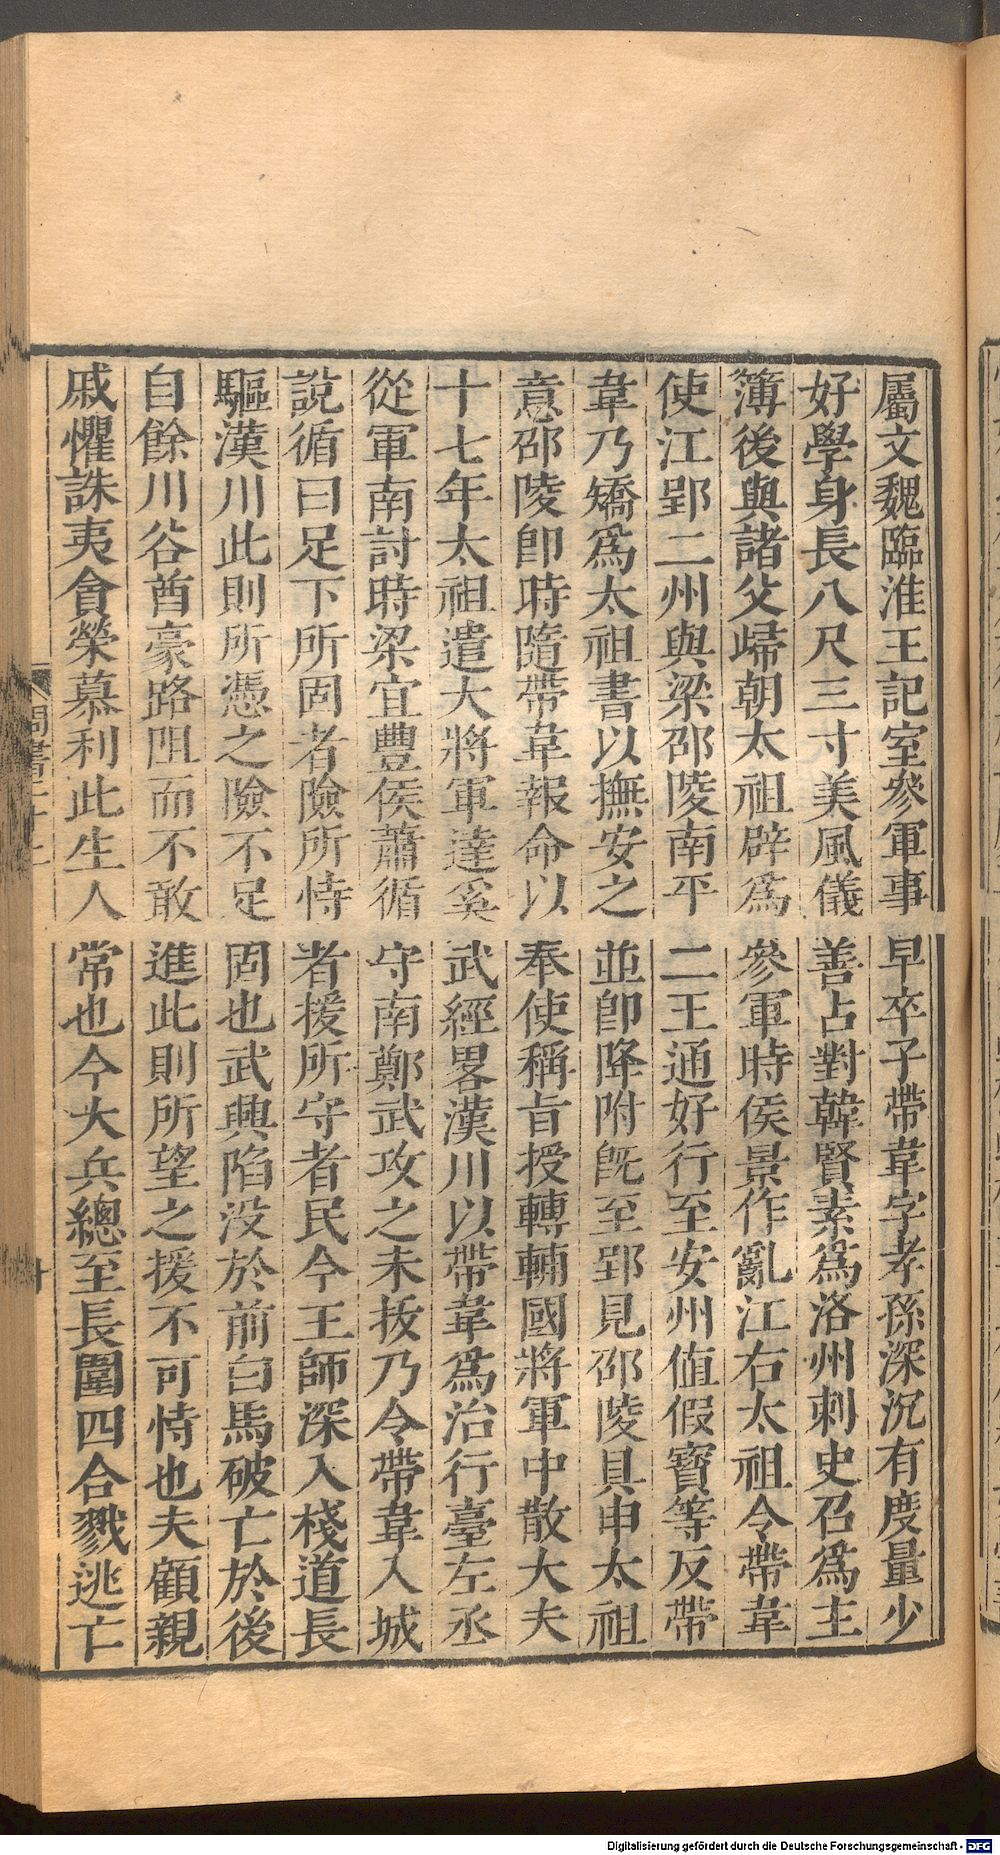 屬文魏臨淮王記室參軍事早卒子帶韋字孝孫深沉有度量少
好學身長八尺三寸美風儀善占對韓賢素爲洛州刺史召爲主
簿後與諸父歸朝太祖辟爲參軍時侯景作亂江右太祖令帶韋
使江郢二州與梁邵陵南平二王通好行至安州值假寶等反帶
韋乃矯爲太祖書以撫安之並卽降附旣至郢見邵陵具申太祖
意邵陵卽時隨帶韋報命以奉使稱旨授轉輔國將軍中散大夫
十七年太祖遣大將軍達奚武經畧漢川以帶韋爲治行臺左丞
從軍南討時梁宜豐侯蕭循守南鄭武攻之未拔乃令帶韋入城
說循曰足下所固者險所恃者援所守者民今王師深入棧道長
驅漢川此則所憑之險不足固也武興陷没於前白馬破亡於後
自餘川谷酋豪路阻而不敢進此則所望之援不可恃也夫顧親
戚懼誅夷貪榮慕利此生人常也今大兵總至長圍四合戮逃亡
周書二十二
Digitalisierung gefördert durch die Deutsche Forschungsgemeinschaft - DFG